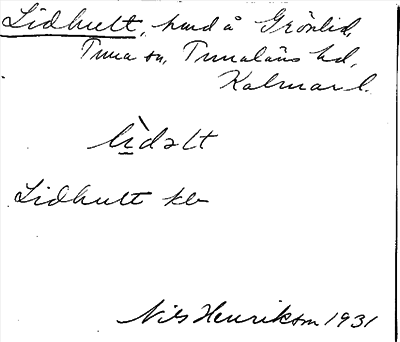 Lidhult, hmd å Grönlid,
Tuna sn, Tunaläns hd,
Kalmar l.
lìdəlt
Lidhult kb
Nils Henrikson 1931